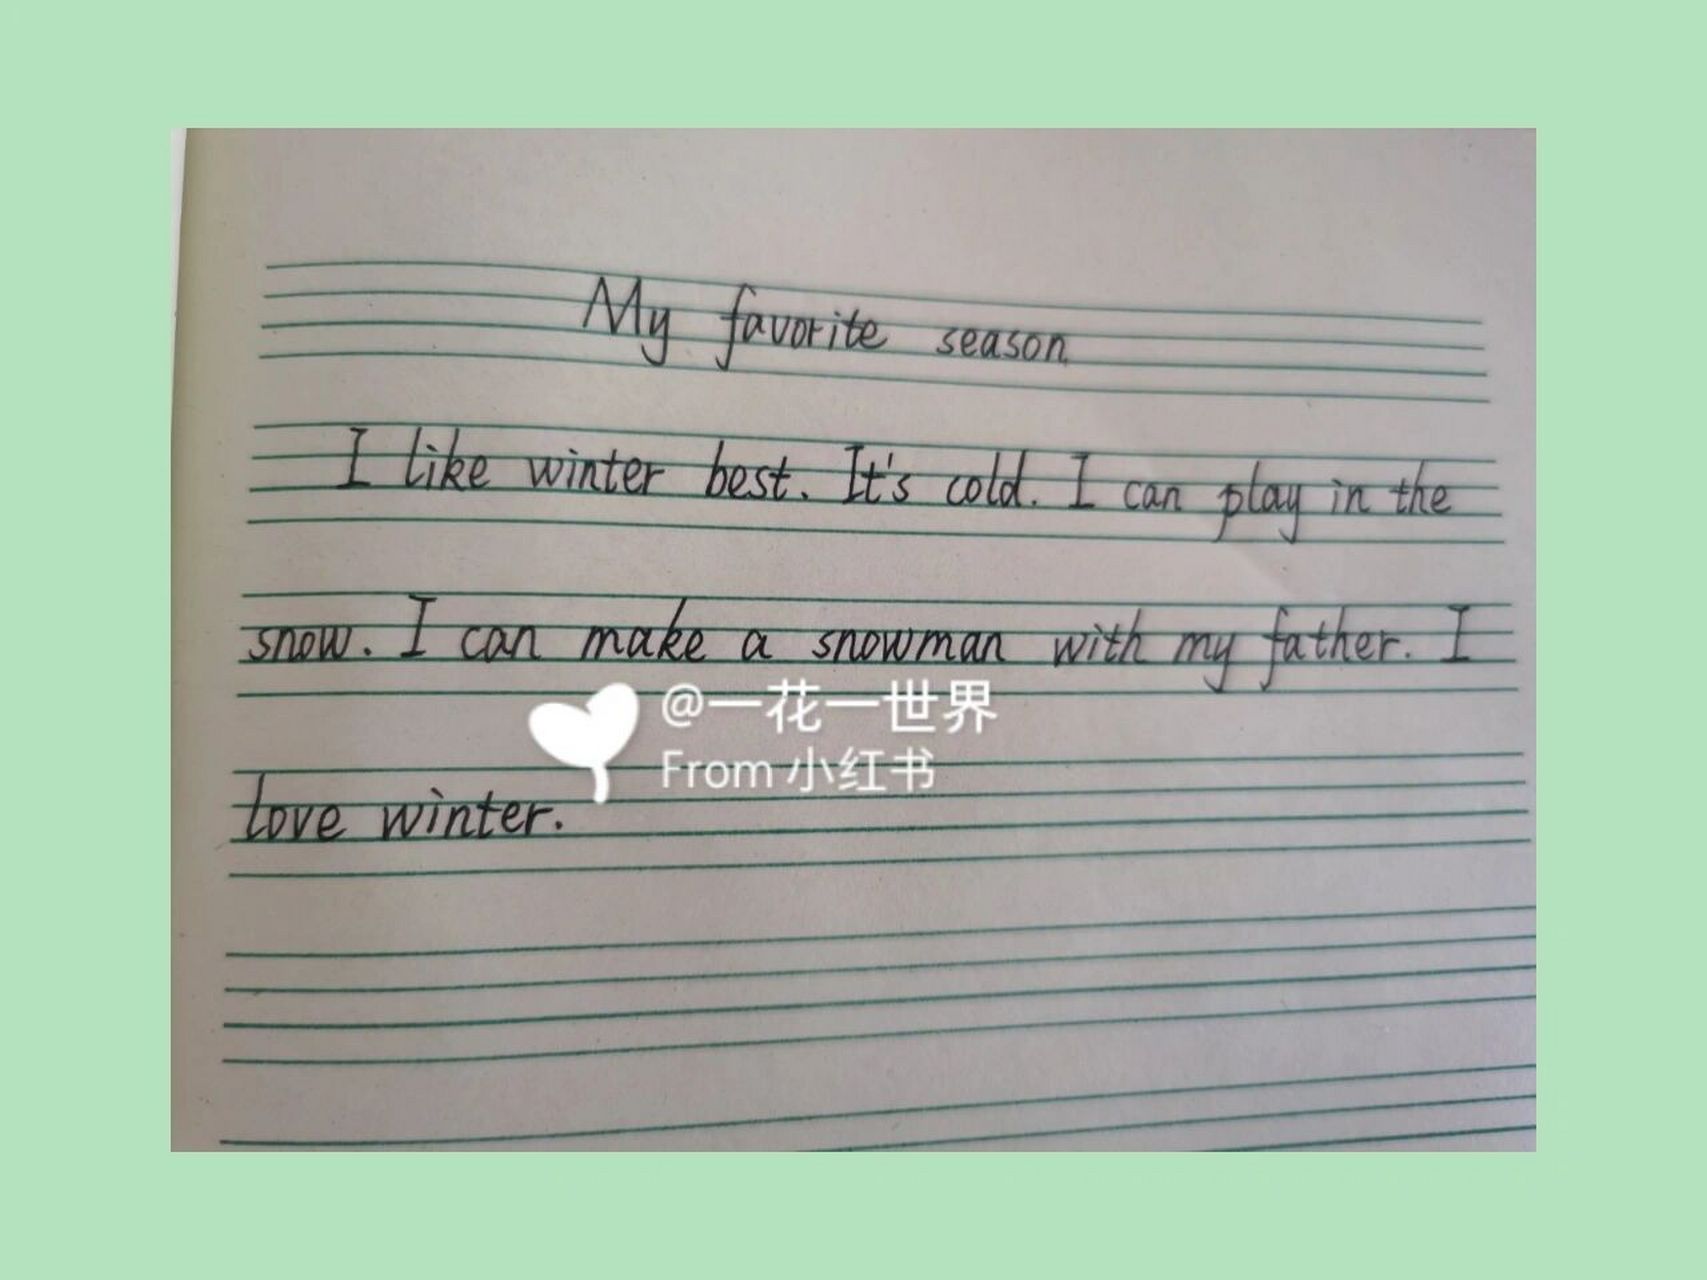 My favorite season
I like winter best. It's cold. I can play in the
snow. I can make a snowman with my father. I
@一花一世界
From 小红书
love winter.